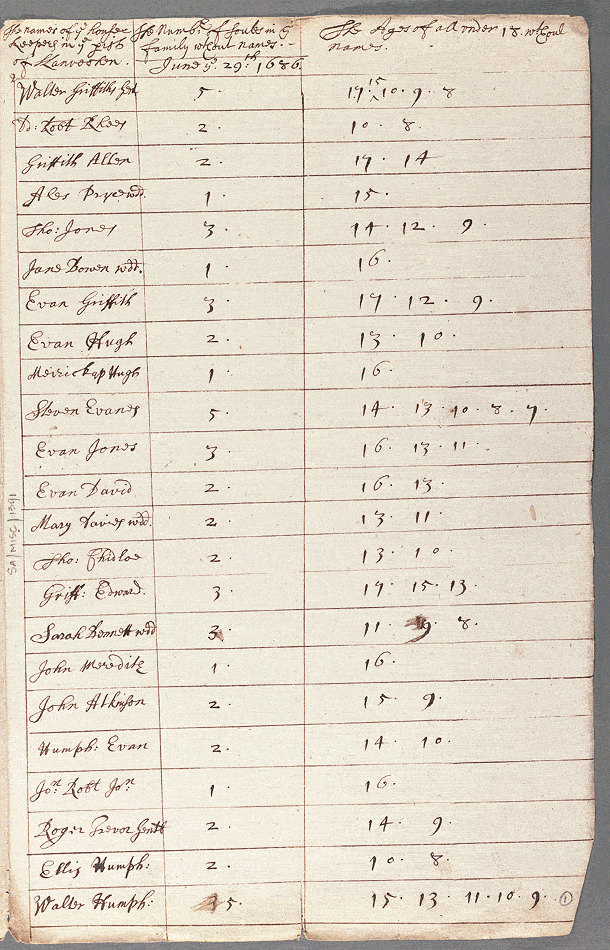 The names of yᵉ houskeepers in yᵉ pish of Llanvechen.
The Numbʳ of soules in yᵉ family wthout names.
June yᵉ 29th 1686
The Ages of all under 18 wthout names.
Walter Griffiths gen 5 . 17. 15 10 . 9 . 8
Robt Rhees 2 . 10 . 8 .
Griffith Allen 2 . 17 . 14
Ales Pryce wdd. 1 . 15 .
Tho: Jones 3 . 14 . 12 . 9 .
Jane Bowen wdd. 1 . 16 .
Evan Griffith 3 . 17 . 12 . 9 .
Evan Hugh 2 . 13 . 10 .
Merrick ap Hugh 1 . 16 .
Steven Evanes 5 . 14 . 13 . 10 . 8 . 7 .
Evan Jones 3 . 16 . 13 . 11 .
Evan David 2 . 16 . 13 .
Mary Davies wdd. 2 . 13 . 11 .
Tho: 2 . 13 . 10 .
Griff: Edward. 3 . 17 . 15 . 13 .
Sarah Bennett wdd 3 . 11 . 9 . 8 .
John Meredith 1 . 16 .
John Atkinson 2 . 15 . 9 .
Humph: Evan 2 . 14 . 10 .
Joⁿ Robt Joⁿ 1 . 16 .
Roger Trevor gentl 2 . 14 . 9 .
Ellis Humph: 2 . 10 . 8 .
Walter Humph: 5 . 15 . 13 . 11 . 10 . 9 . 1
SA/MISC/1841